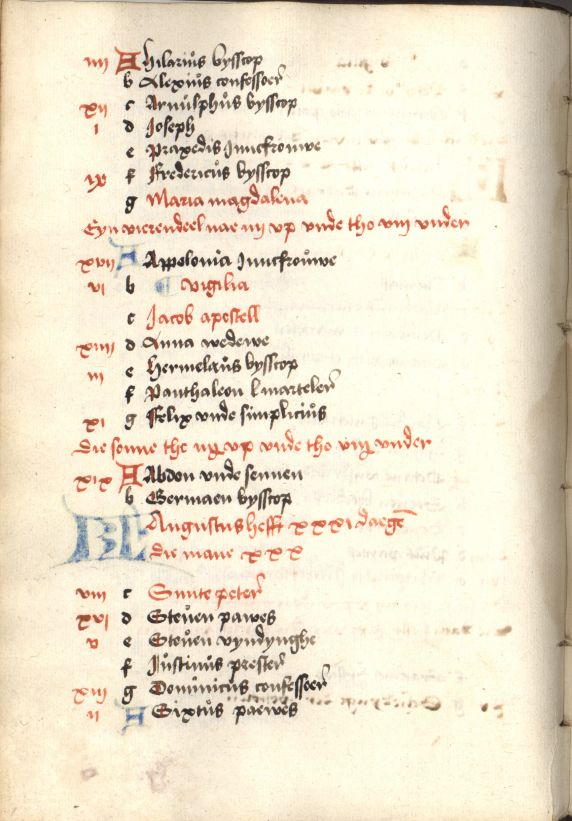 iiii A hilarius bysscop
b Alexius confessoer
xii c Arnulphus bysscop
i d Joseph
e Praxedis Juncfrouwe
ix f Fredericus bysscop
g Maria magdalena
Eyn vierendeel nae iiij vp vnde tho viij vnder
xvii A Appolonia Juncfrouwe
vi b vigilia
c Jacob apostell
xiiii d Anna wedewe
iii e hermelaus bysscop
f Panthaleon Marteler
xi g Felix vnde simplicius
die sonne tho vp vnde tho viij vnder
xix A Abdon vnde sennen
b Germaen bysscop
KL Augustus hefft xxxi daege
die mane xxx
viii c Sunte peter
xvi d Steuen pawes
v e Steuen vyndynghe
f Justinus prester
xiii g Dominicus confessoer
ii A Sixtus paewes